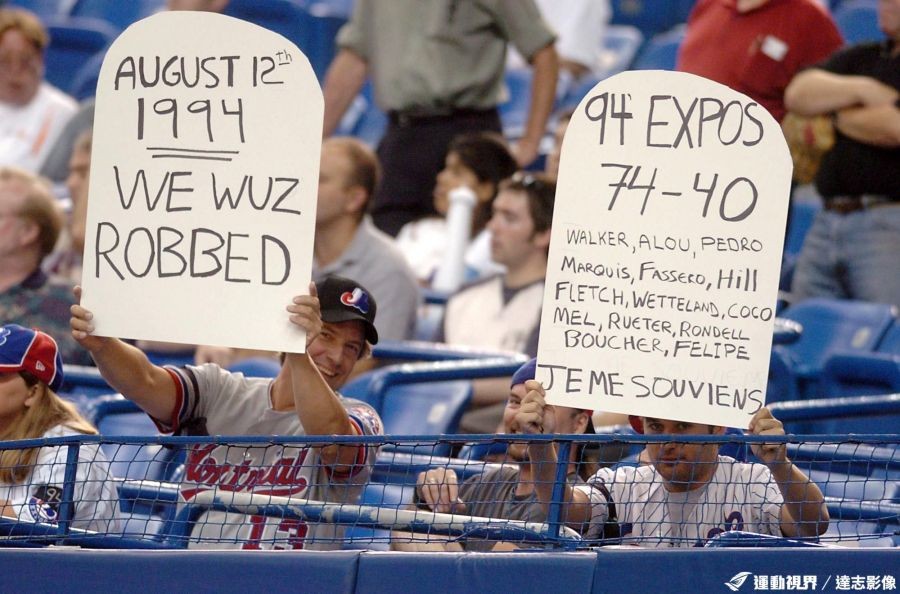 AUGUST 12th
1994
WE WUZ
ROBBED
94' EXPOS
74-40
WALKER, ALOU, PEDRO
MARQUIS, FASSERO, Hill
FLETCH, WETTELAND, COCO
MEL, RUETER, RONDELL
BOUCHER, FELIPE
JE ME SOUVIENS
Montreal
13
運動視界／達志影像